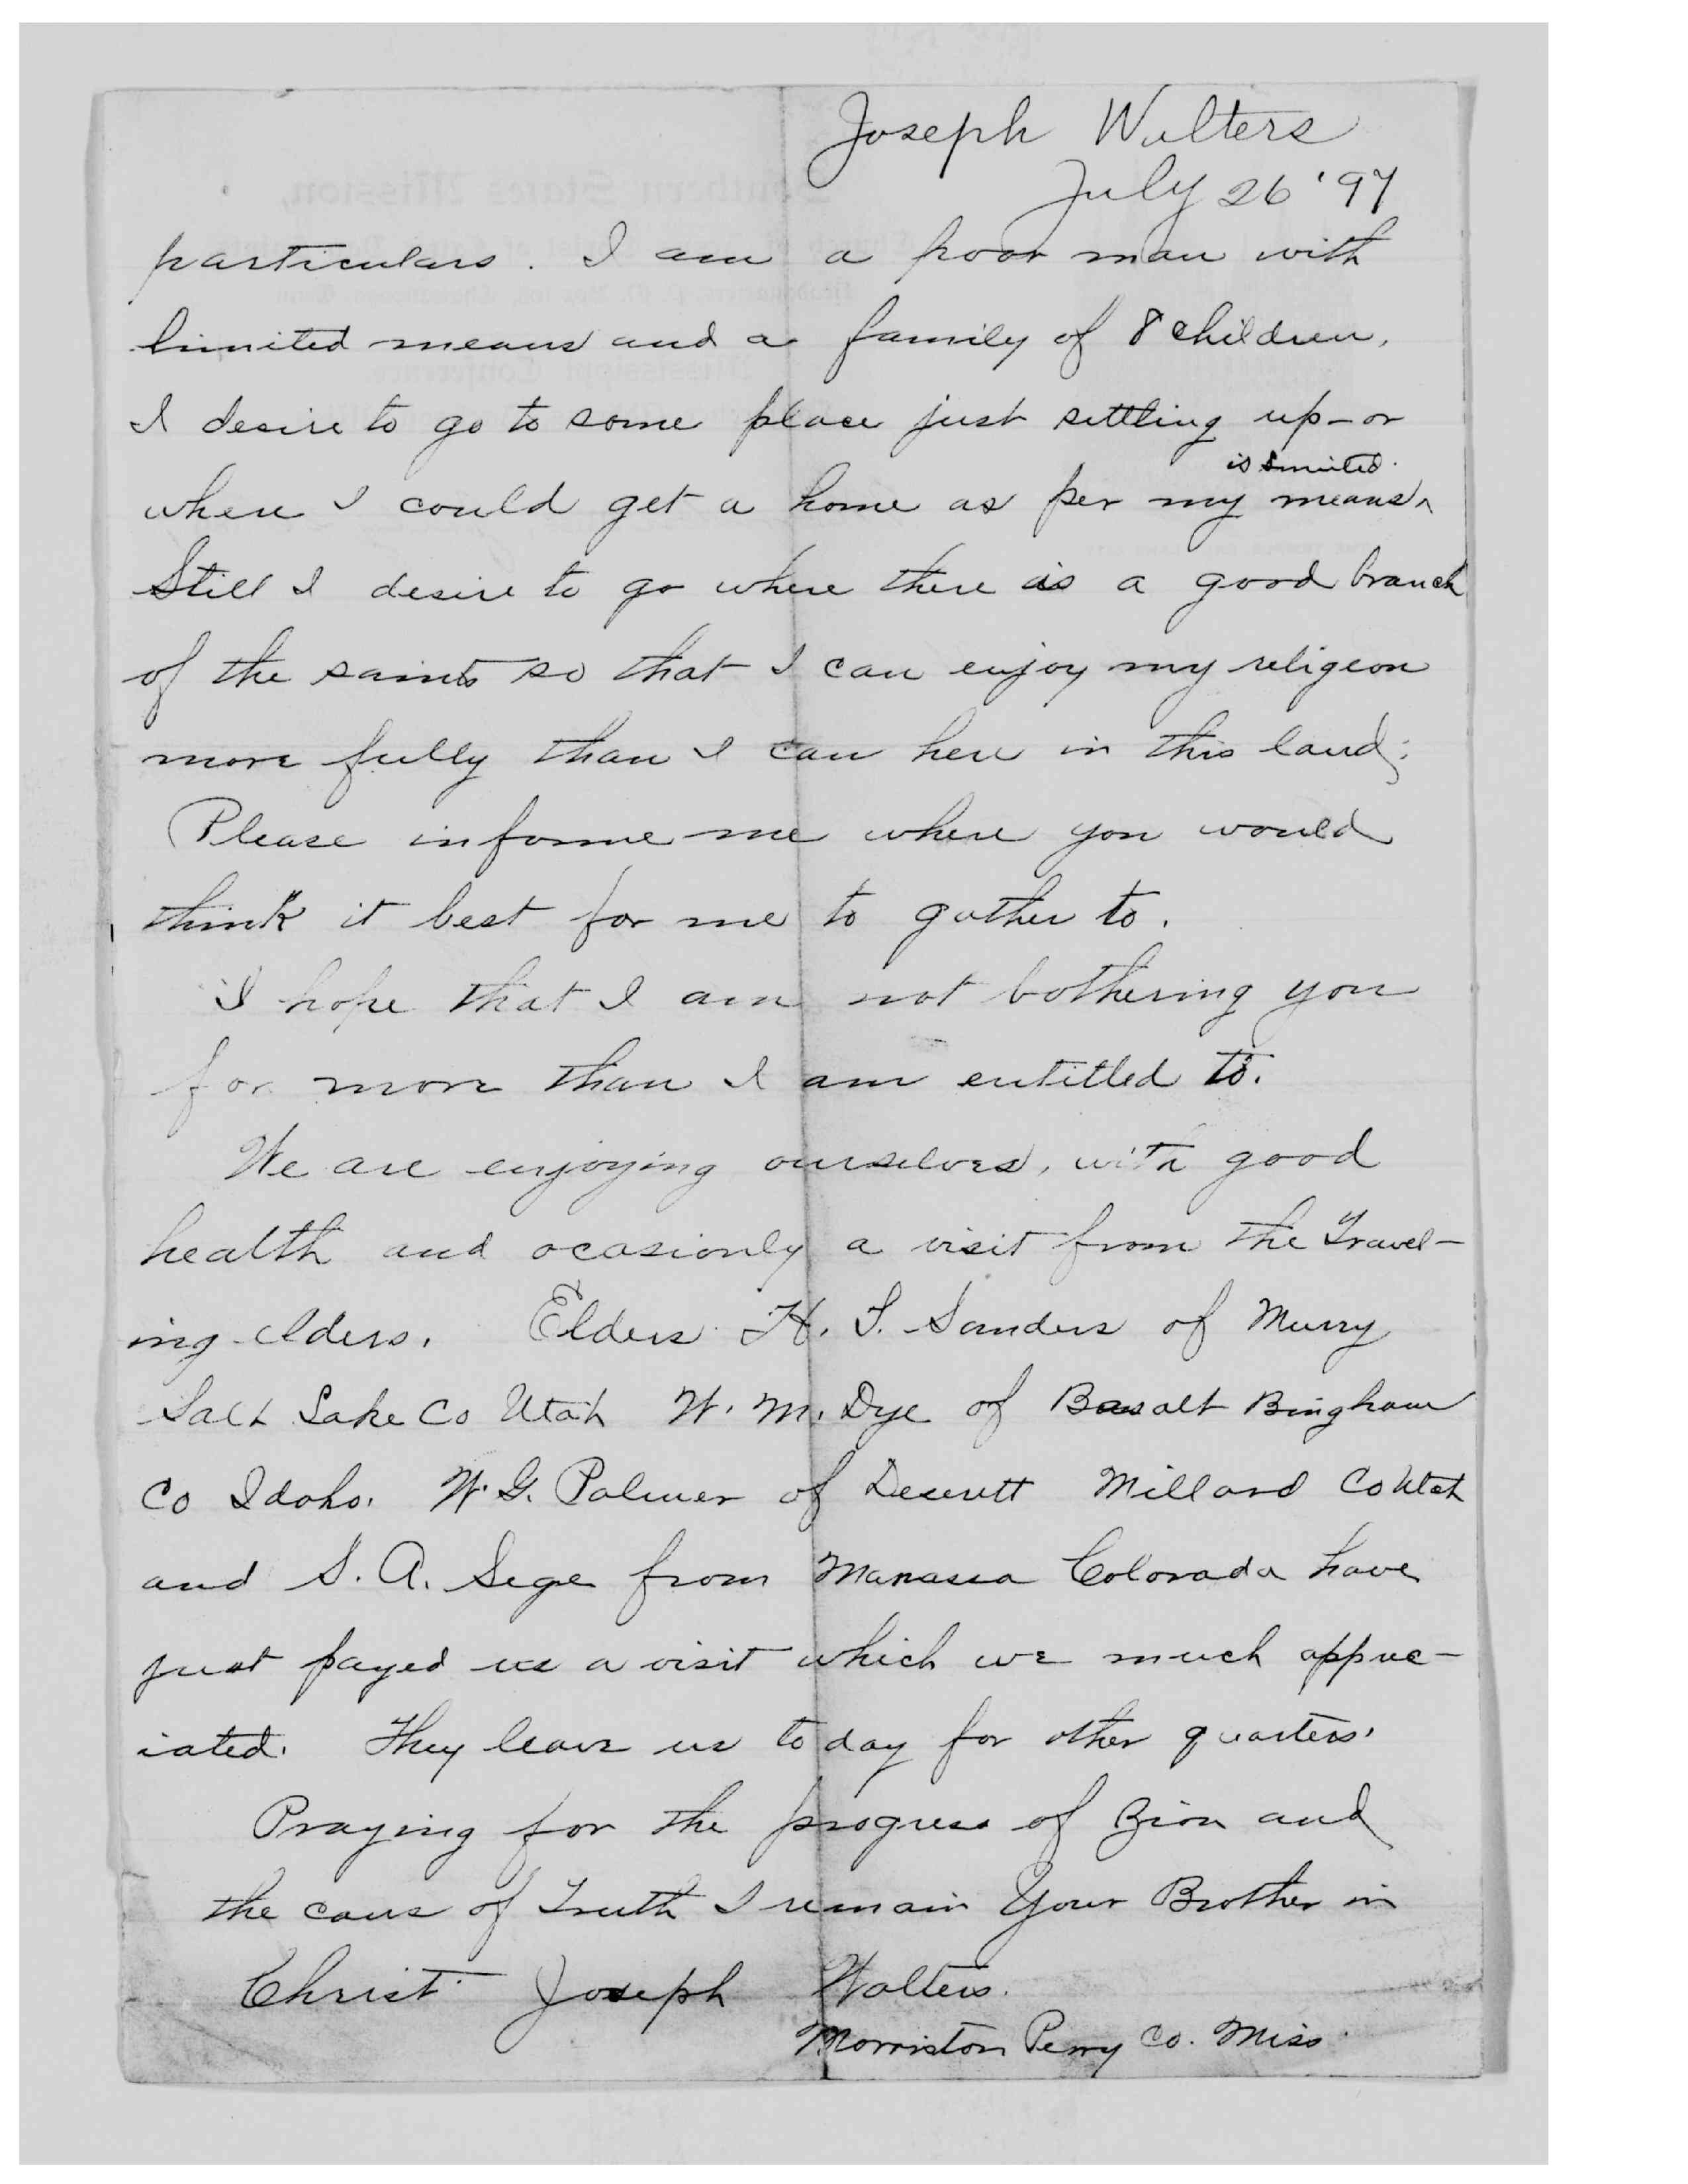 Joseph Walters
July 26 '97
particulars. I am a poor man with
limited means and a family of 8 children.
I desire to go to some place just settling up - or
is limited.
where I could get a home as per my means^
Still I desire to go where there is a good branch
of the saints so that I can enjoy my religeon
more fully than I can here in this land;
Please informe me where you would
think it best for me to gather to.
I hope that I am not bothering you
for more than I am entitled to.
We are enjoying ourselves, with good
health and ocasionly a visit from the Travel-
ing elders. Elders H. S. Sanders of Murry
Salt Lake Co Utah W. M. Dye of Basalt Bingham
Co Idaho. W. G. Palmer of Deserett Millard Co Utah
and S. A. Sege from Manassa Colorada have
just payed us a visit which we much appre-
iated. They leave us to day for other quarters.
Praying for the progress of Zion and
the caus of Truth I remain Your Brother in
Christ Joseph Walters.
Morriston Perry Co. Miss.